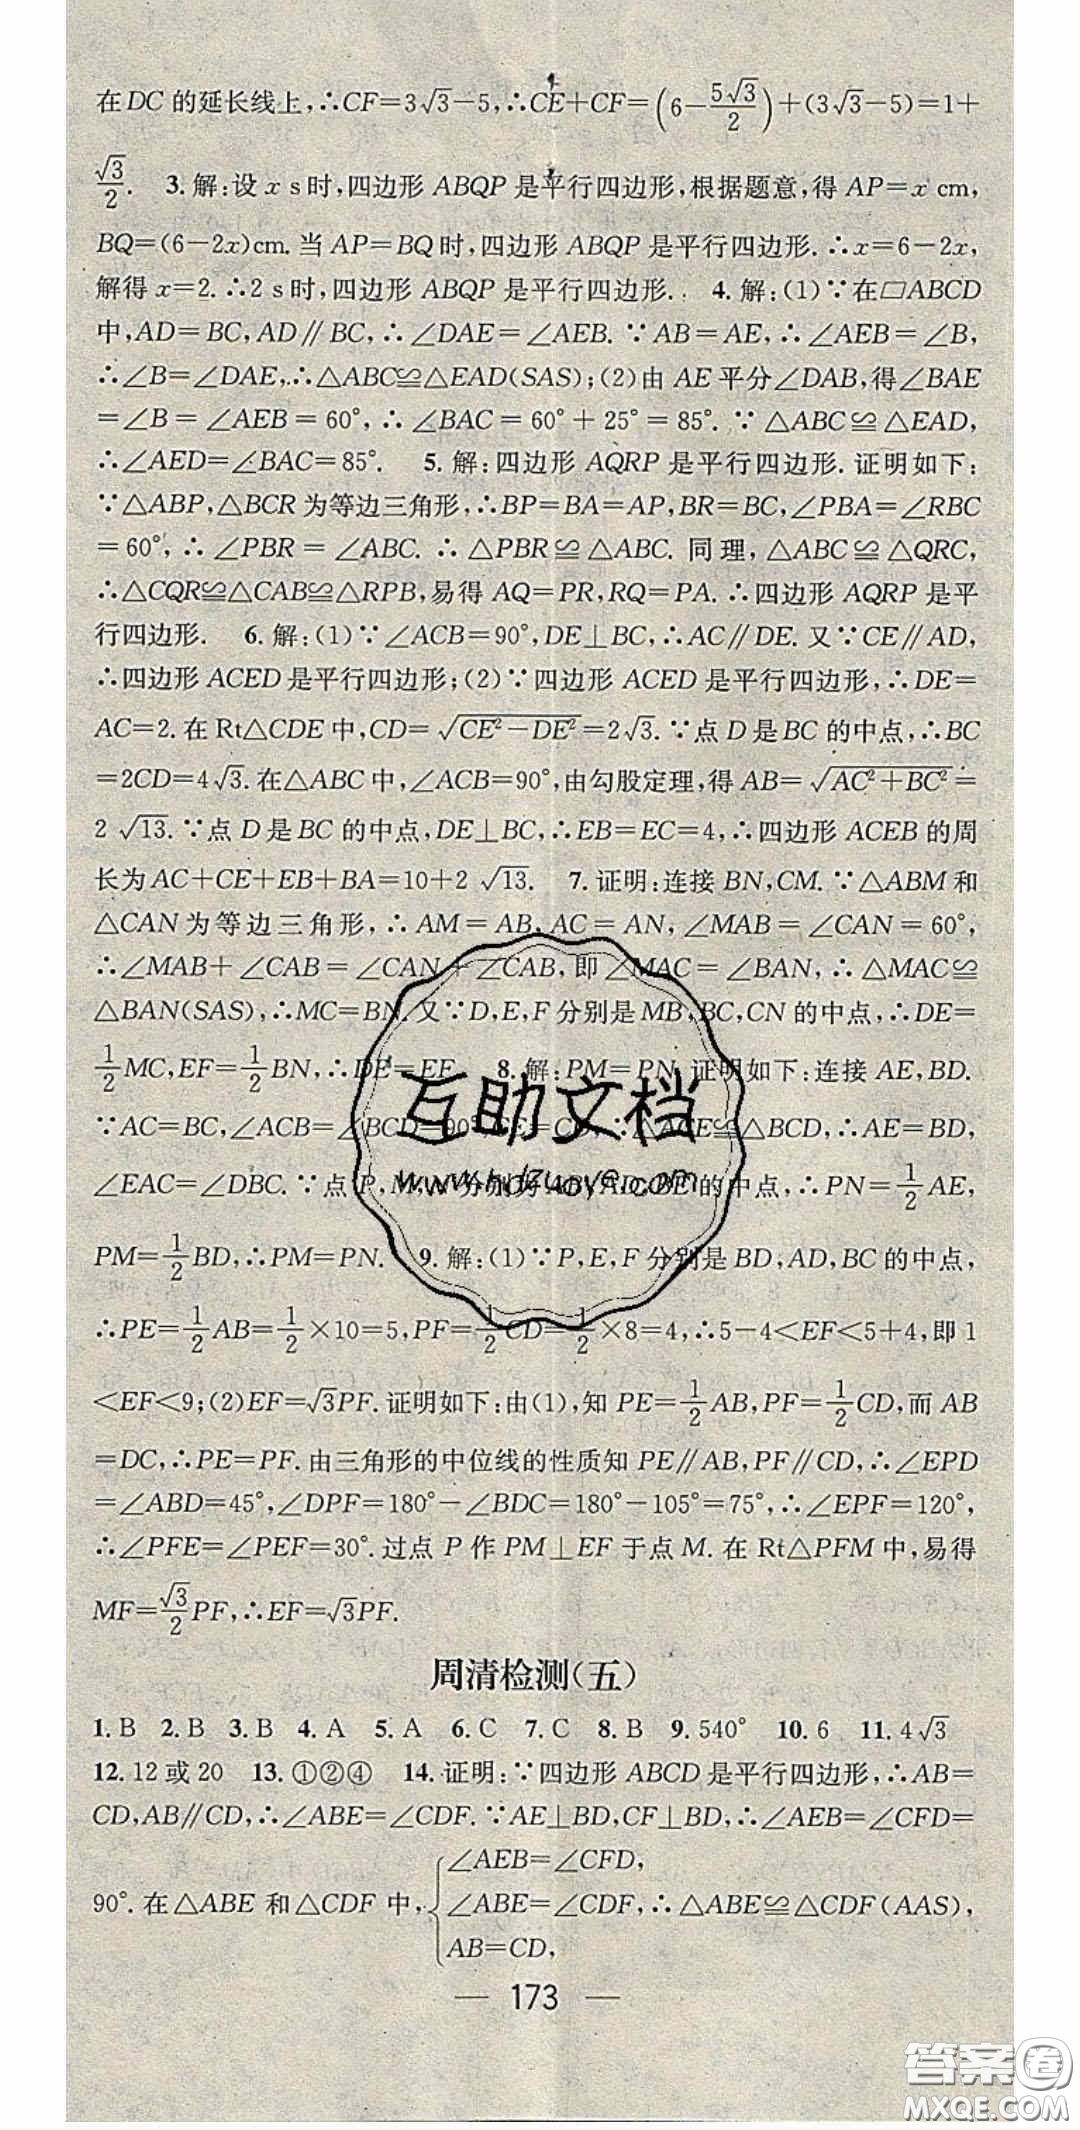 在DC的延长线上,∴CF=3√3−5,∴CE+CF=(6−5√3/2)+(3√3−5)=1+
√3/2. 3.解:设x s时,四边形ABQP是平行四边形,根据题意,得AP=x cm,
BQ=(6−2x)cm.当AP=BQ时,四边形ABQP是平行四边形.∴x=6−2x,
解得x=2.∴2 s时,四边形ABQP是平行四边形. 4.解:(1)∵在▱ABCD
中,AD=BC,AD∥BC,∴∠DAE=∠AEB.∵AB=AE,∴∠AEB=∠B,
∴∠B=∠DAE,∴△ABC≌△EAD(SAS);(2)由AE平分∠DAB,得∠BAE
=∠B=∠AEB=60°,∴∠BAC=60°+25°=85°.∵△ABC≌△EAD,
∴∠AED=∠BAC=85°. 5.解:四边形AQRP是平行四边形.证明如下:
∵△ABP,△BCR为等边三角形,∴BP=BA=AP,BR=BC,∠PBA=∠RBC
=60°,∴∠PBR=∠ABC.∴△PBR≌△ABC.同理,△ABC≌△QRC,
∴△CQR≌△CAB≌△RPB,易得AQ=PR,RQ=PA.∴四边形AQRP是平
行四边形. 6.解:(1)∵∠ACB=90°,DE⊥BC,∴AC∥DE.又∵CE∥AD,
∴四边形ACED是平行四边形;(2)∵四边形ACED是平行四边形,∴DE=
AC=2.在Rt△CDE中,CD=√(CE²−DE²)=2√3.∵点D是BC的中点,∴BC
=2CD=4√3.在△ABC中,∠ACB=90°,由勾股定理,得AB=√(AC²+BC²)=
2√13.∵点D是BC的中点,DE⊥BC,∴EB=EC=4,∴四边形ACEB的周
长为AC+CE+EB+BA=10+2√13. 7.证明:连接BN,CM.∵△ABM和
△CAN为等边三角形,∴AM=AB,AC=AN,∠MAB=∠CAN=60°,
∴∠MAB+∠CAB=∠CAN+∠CAB,即∠MAC=∠BAN,∴△MAC≌
△BAN(SAS),∴MC=BN.又∵D,E,F分别是MB,BC,CN的中点,∴DE=
1/2MC,EF=1/2BN,∴DE=EF. 8.解:PM=PN.证明如下:连接AE,BD.
∵AC=BC,∠ACB=∠BCD=90°,CE=CD,∴△ACE≌△BCD,∴AE=BD,
∠EAC=∠DBC.∵点P,M,N分别为AB,AD,BE的中点,∴PN=1/2AE,
PM=1/2BD,∴PM=PN. 9.解:(1)∵P,E,F分别是BD,AD,BC的中点,
∴PE=1/2AB=1/2×10=5,PF=1/2CD=1/2×8=4,∴5−4<EF<5+4,即1
<EF<9;(2)EF=√3PF.证明如下:由(1),知PE=1/2AB,PF=1/2CD,而AB
=DC,∴PE=PF.由三角形的中位线的性质知PE∥AB,PF∥CD,∴∠EPD
=∠ABD=45°,∠DPF=180°−∠BDC=180°−105°=75°,∴∠EPF=120°,
∴∠PFE=∠PEF=30°.过点P作PM⊥EF于点M.在Rt△PFM中,易得
MF=√3/2PF,∴EF=√3PF.
周清检测(五)
1.B 2.B 3.B 4.A 5.A 6.C 7.C 8.B 9.540° 10.6 11.4√3
12.12或20 13.①②④ 14.证明:∵四边形ABCD是平行四边形,∴AB=
CD,AB∥CD,∴∠ABE=∠CDF.∵AE⊥BD,CF⊥BD,∴∠AEB=∠CFD=
∠AEB=∠CFD,
90°.在△ABE和△CDF中,∠ABE=∠CDF,∴△ABE≌△CDF(AAS),
AB=CD,
— 173 —
互助文档
www.hdzuoye.com
答案圈
MXQE.COM